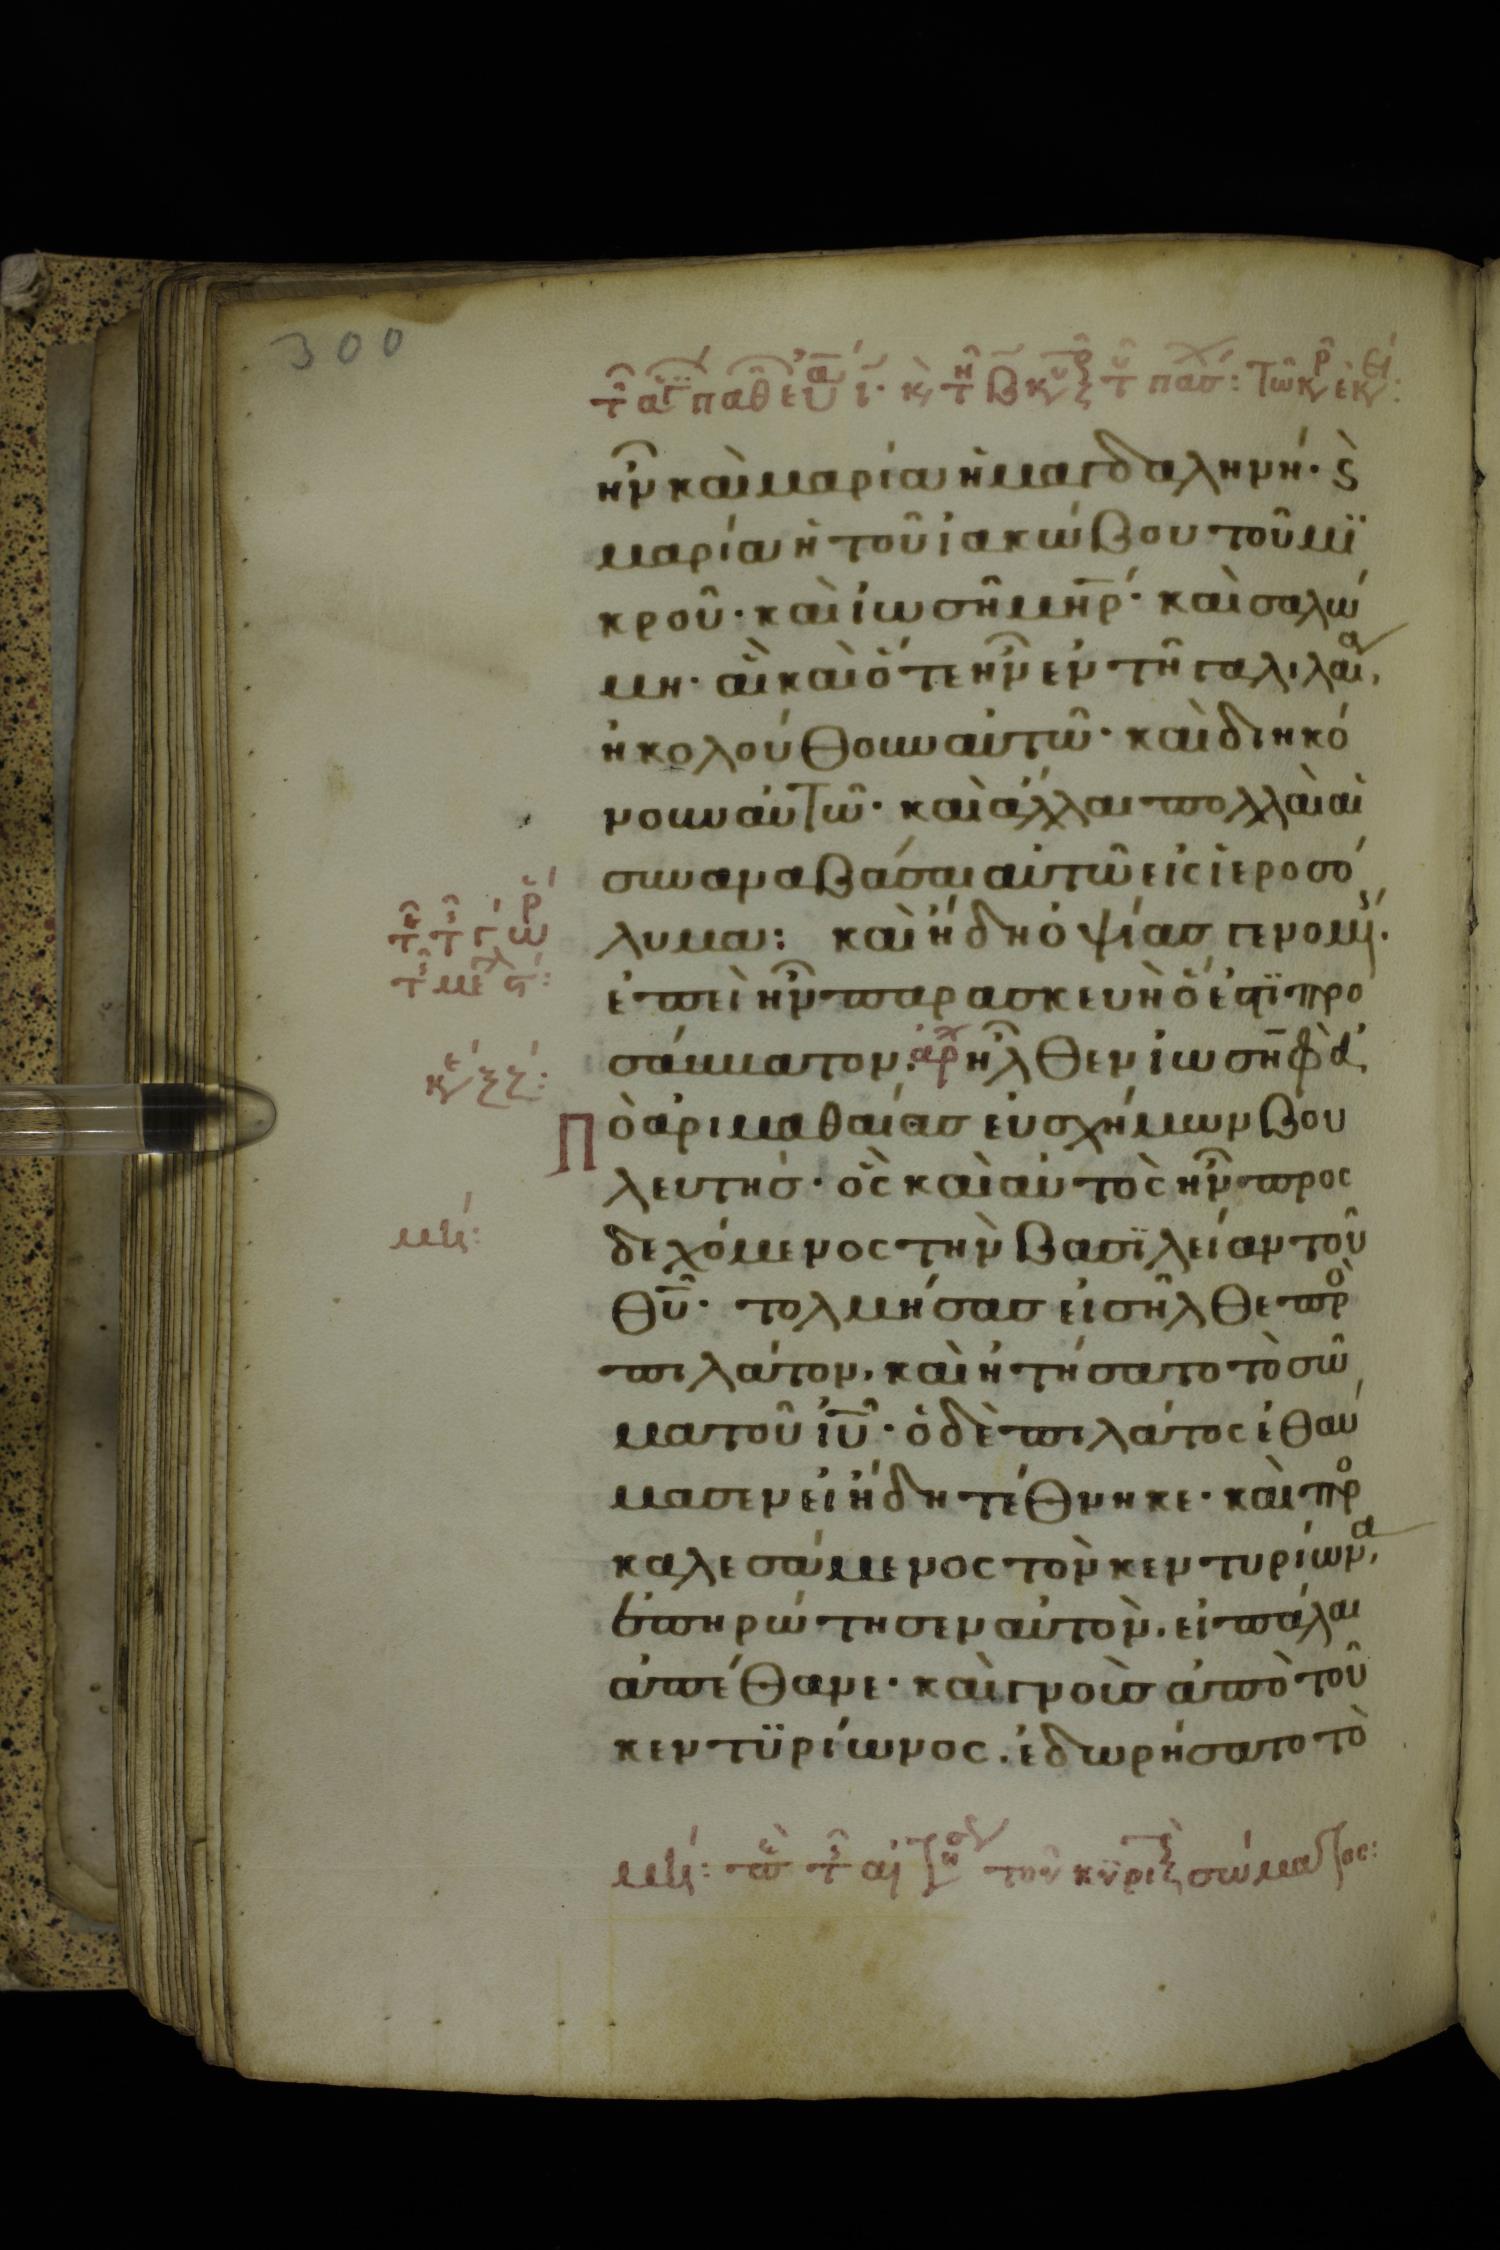 300
ἦν καὶ μαρία ἡ μαγδαληνή· ϗ
μαρία ἡ τοῦ ἰακώβου τοῦ μϊ
κροῦ· καὶ ἰωσῆ μηρ· καὶ σαλώ
μη· αἳ καὶ ὅτε ἦν ἐν τῆ γαλιλαία,
ἠκολούθουν αὐτῶ· καὶ διηκό
νουν αὐτῶ· καὶ ἄλλαι πολλαὶ αἱ
συναναβάσαι αὐτῶ εἰς ἱεροσό
λυμα: καὶ ἤδη ὀψίας γενομέ.
ἐπεὶ ἦν παρασκευὴ ὅ ἐστϊ προ
σάββατον. ἀρχ ἦλθεν ἰωσὴφ ὁ ἀ
ὁ ἀριμαθαίας εὐσχήμων βου
λευτής· ὃς καὶ αὐτὸς ἦν προς
δεχόμενος τὴν βασϊλείαν τοῦ
θυ· τολμήσας εἰσῆλθε πρὸ
πιλάτον, καὶ ἠτήσατο τὸ σῶ
μα τοῦ ιυ· ὁ δὲ πιλάτος ἐθαύ
μασεν εἰ ἤδη τέθνηκε· καὶ προ
καλεσάμενος τὸν κεντυρίωνα,
ἐπηρώτησεν αὐτὸν, εἰ πάλαι
ἀπέθανε· καὶ γνοὺς ἀπὸ τοῦ
κεντϋρίωνος, ἐδωρήσατο τὸ